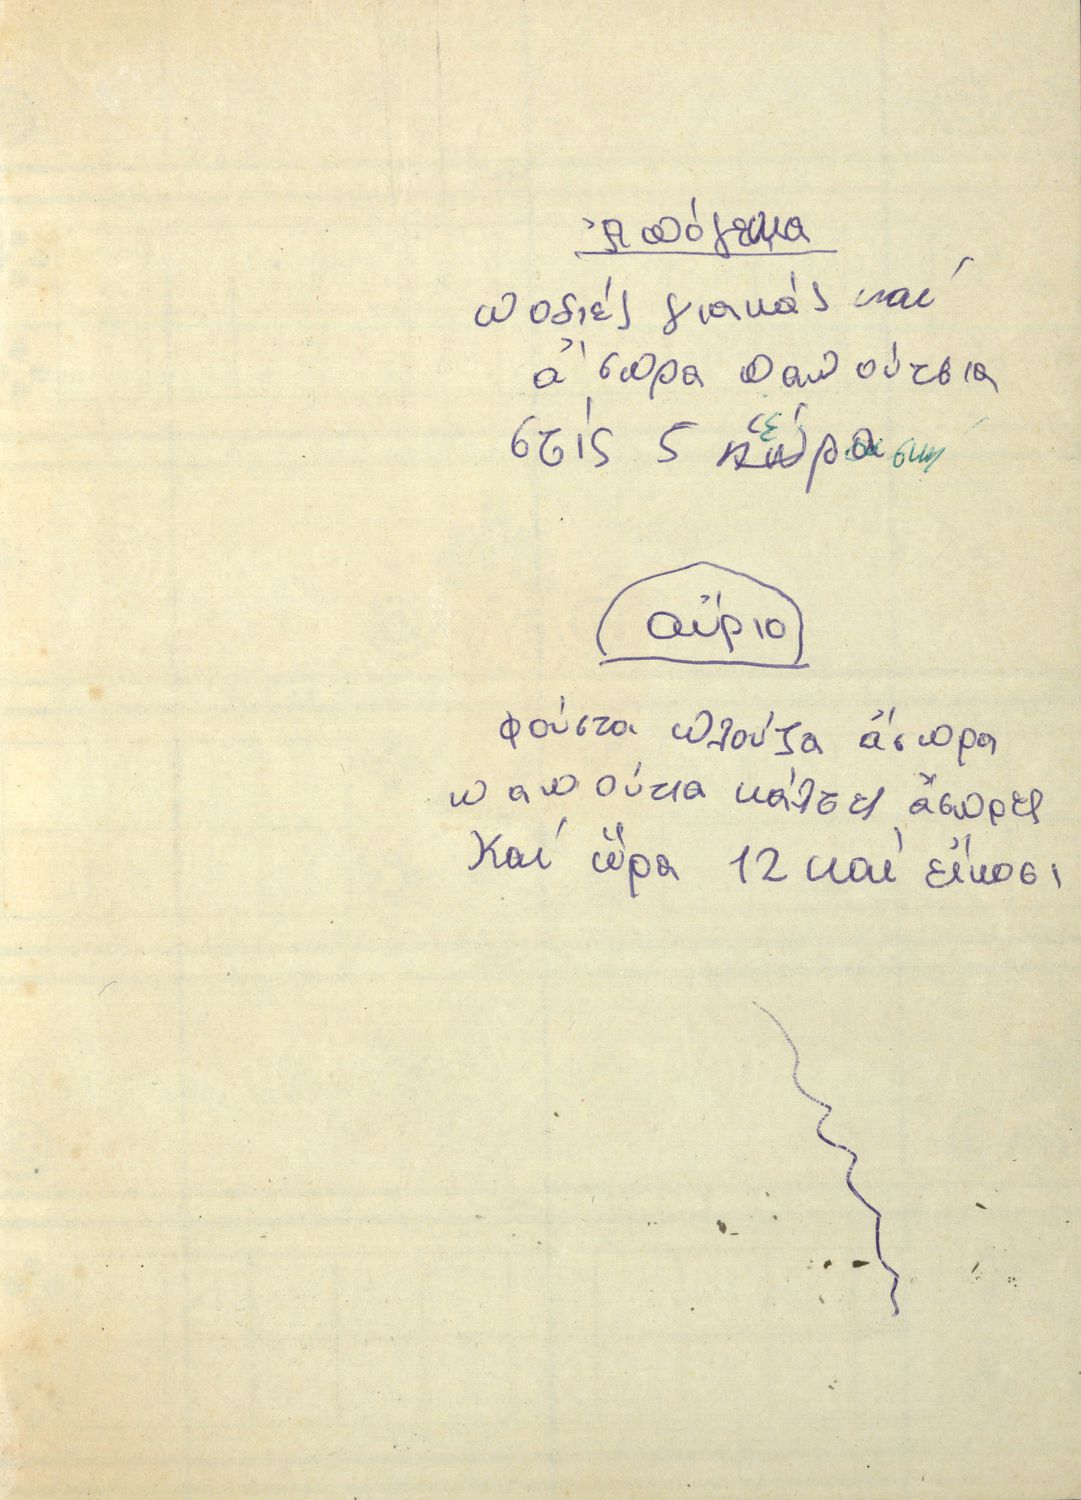 Ἀπόγεμα
ποδιές γιακάς καί
ἄσπρα παπούτσια
στίς 5 ὥρα
αὔριο
φούστα μπλούζα ἄσπρα
παπούτια κάλτσες ἄσπρες
Καί ὥρα 12 καί εἴκοσι